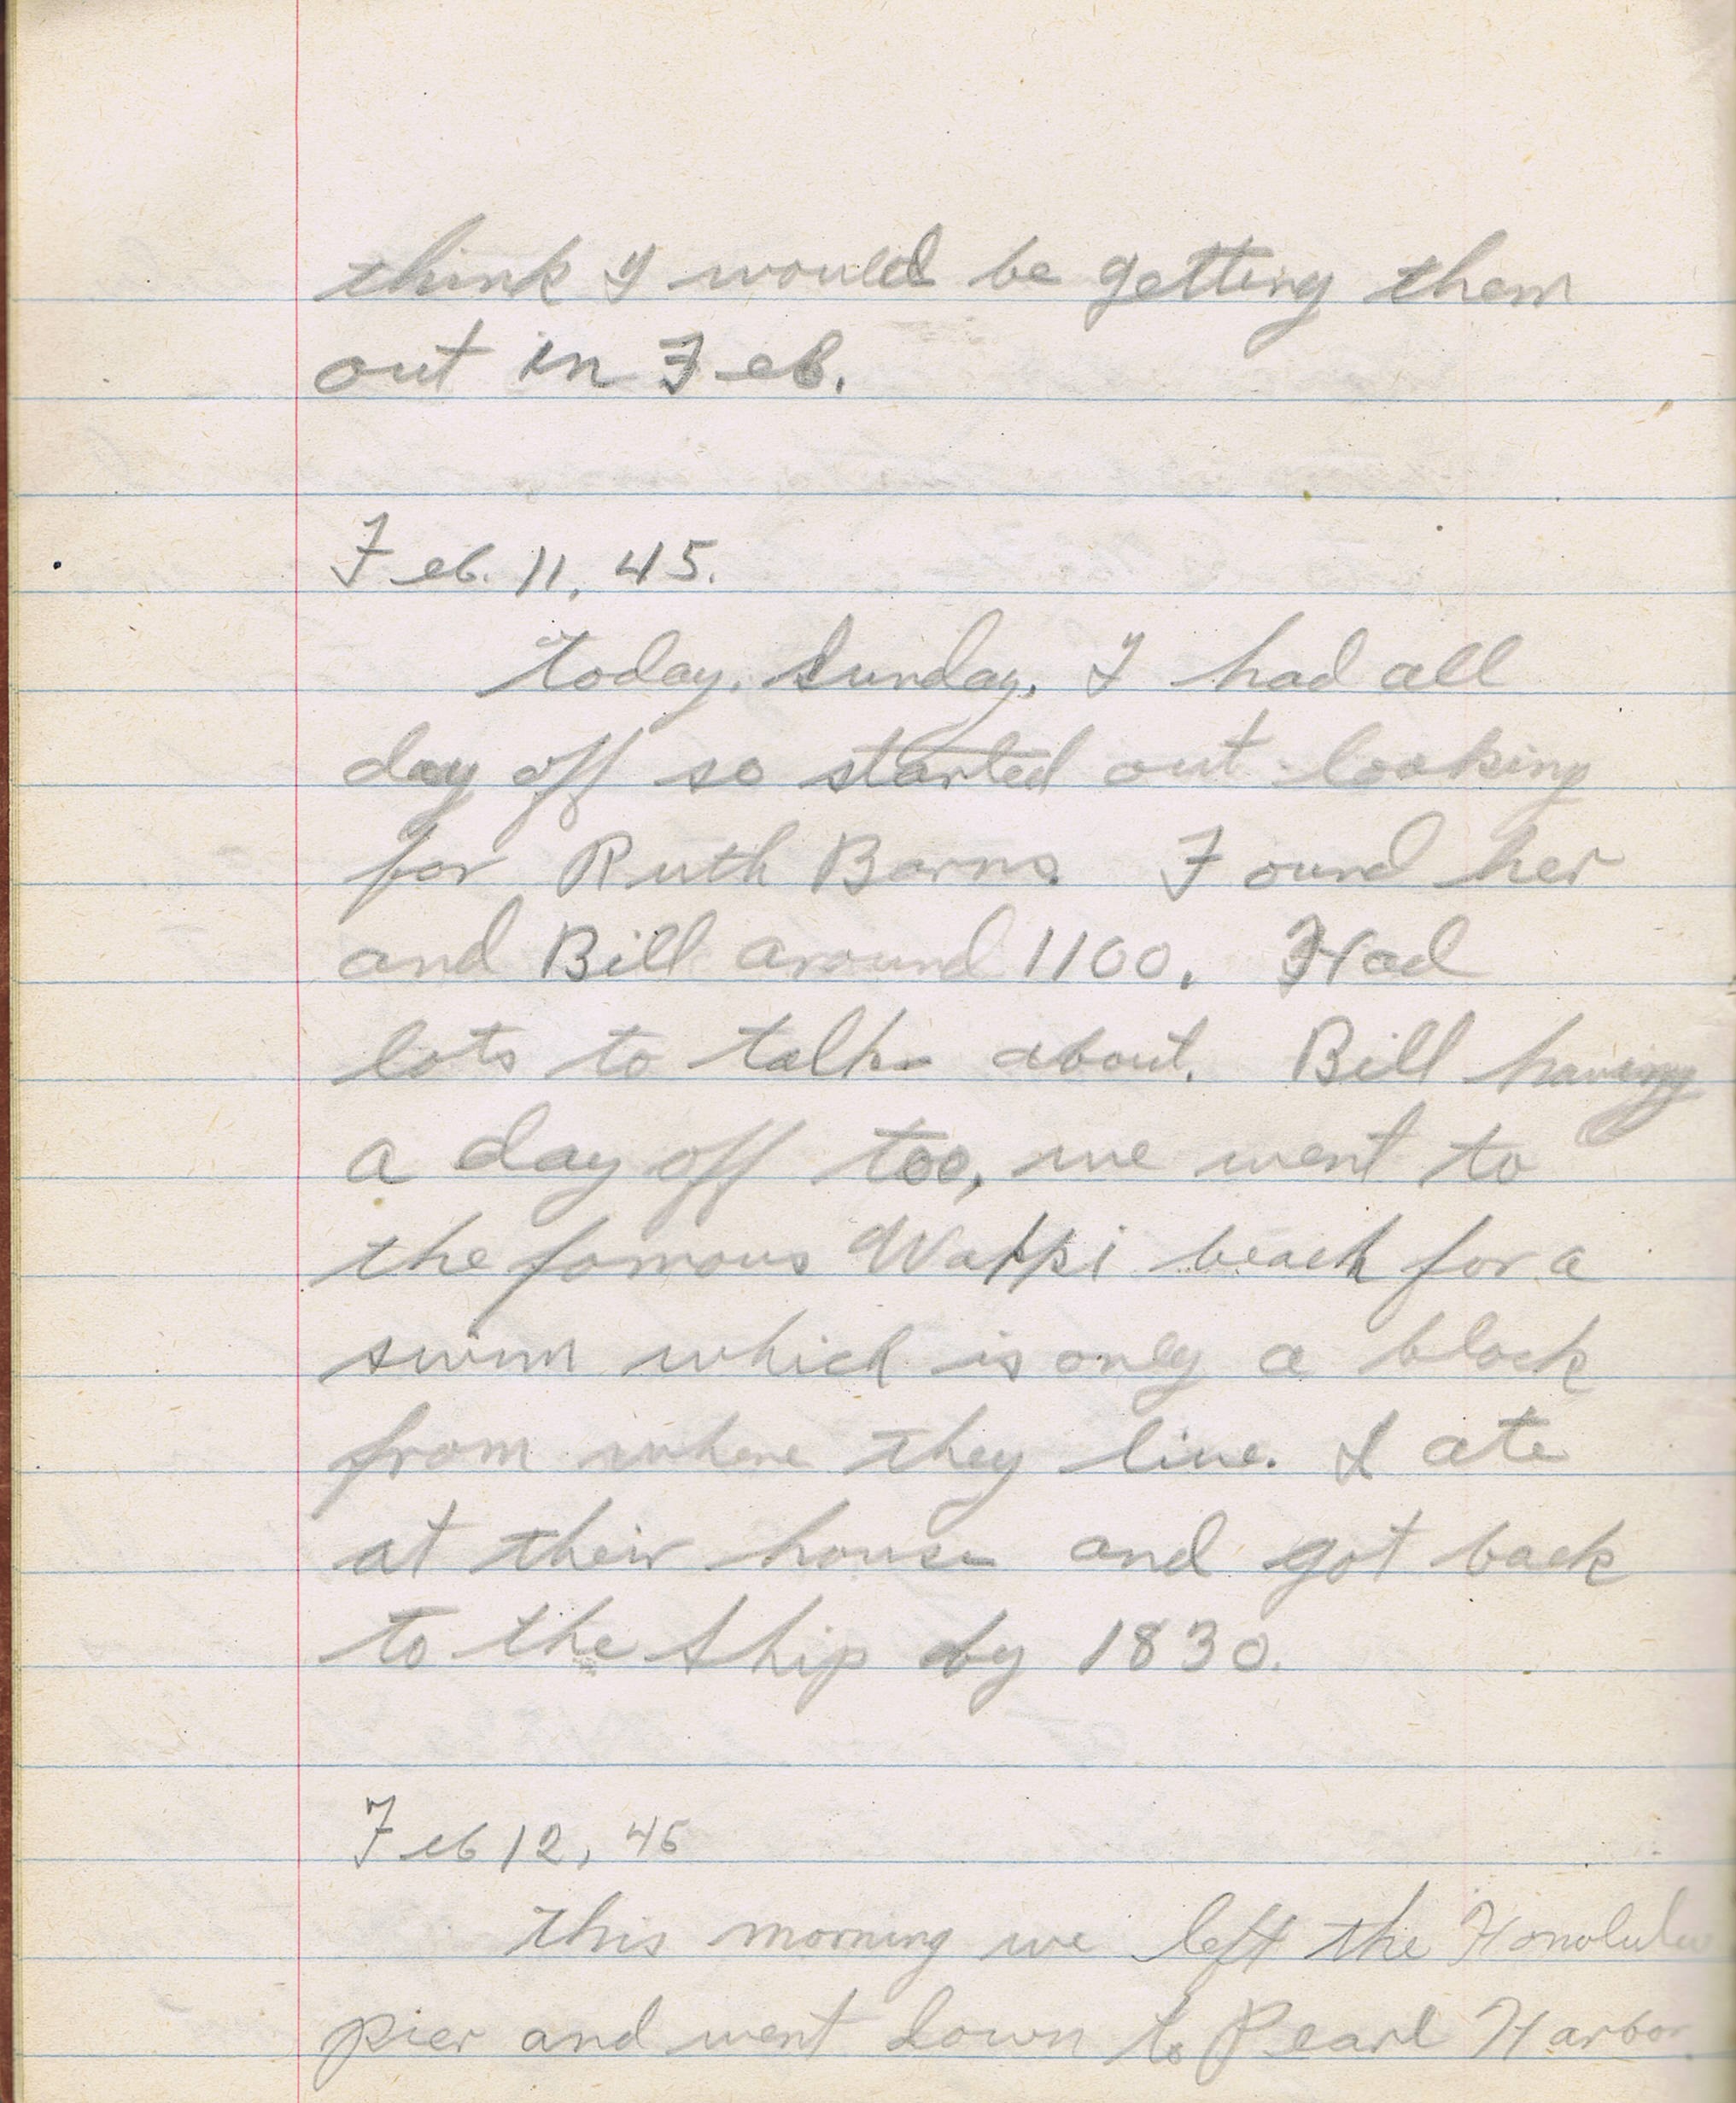 think I would be getting them
out in Feb.
Feb. 11, 45.
Today, Sunday, I had all
day off so started out looking
for Ruth Barns. Found her
and Bill around 1100. Had
lots to talk about. Bill having
a day off too, we went to
the famous beach for a
swim which is only a block
from where they live. I ate
at their house and got back
to the ship by 1830.
Feb 12, 45
This morning we left the Honolulu
pier and went down to Pearl Harbor